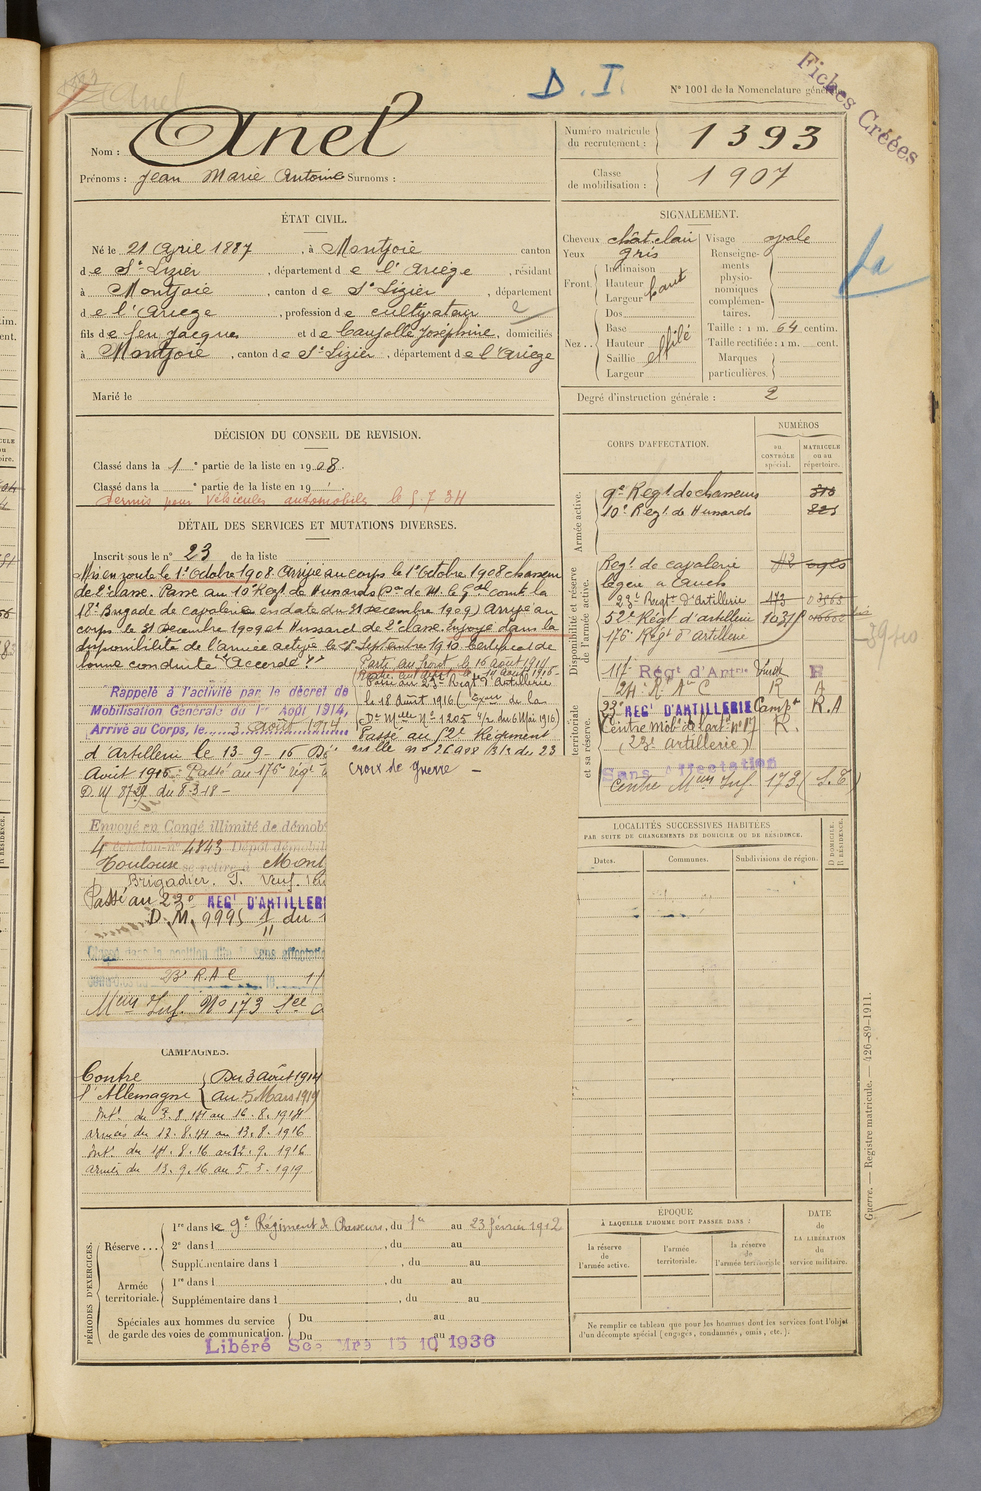 D. I.
N° 1001 de la Nomenclature génér
Fiches Créées
Nom : Anel
Prénoms : Jean Marie Antoine Surnoms :
Numéro matricule du recrutement : 1393
Classe de mobilisation : 1907
ÉTAT CIVIL.
Né le 21 Avril 1887, à Montjoie canton
de St Lizier, département de l'Ariège, résidant
à Montjoie, canton de St Lizier, département
de l'Ariège, profession de cultivateur
fils de feu Jacques et de Caujolle Joséphine, domiciliés
à Montjoie, canton de St Lizier, département de l'Ariège
Marié le
SIGNALEMENT.
Cheveux chât. clair Visage ovale
Yeux gris
Renseignements physionomiques complémentaires.
Front. Inclinaison
Hauteur haut
Largeur
Nez. Dos
Base
Hauteur effilé
Saillie
Largeur
Taille : 1 m. 64 centim.
Taille rectifiée : 1 m. cent.
Marques particulières.
Degré d'instruction générale : 2
DÉCISION DU CONSEIL DE REVISION.
Classé dans la 1e partie de la liste en 1908.
Classé dans la e partie de la liste en 19
Permis pour Véhicules automobiles le 5.7.34
DÉTAIL DES SERVICES ET MUTATIONS DIVERSES.
Inscrit sous le n° 23 de la liste
Mis en route le 1er Octobre 1908. Arrivé au corps le 1er Octobre 1908 chasseur
de 2e classe. Passé au 10e Régt de Hussards (on de M. le Gal comt la
18e Brigade de cavalerie en date du 31 décembre 1909) Arrivé au
corps le 31 Décembre 1909 et Hussard de 2e classe. Envoyé dans la
disponibilité de l'armée active le Septembre 1910. Certificat de
bonne conduite "Accordé".
Rappelé à l'activité par le décret de
Mobilisation Générale du 1er Août 1914,
Arrivé au Corps, le 3 Août 1914
Parti au front le 16 août 1914
Passé au 23e Régt d'Artillerie
le 18 Août 1916 ( de la
Dn Mlle N° 1205 4/2 du 6 Mai 1916)
Passé au 52e Régiment
d'Artillerie le 13-9-16
du 23
Août 1916. Passé au 176e régt
D.M 8729 du 8-3-18
Croix de Guerre
Envoyé en Congé illimité de démob
4e échelon n° 4843 Dépôt démobil
Toulouse se retire à Mont
Brigadier.
Passé au 23e REGt D'ARTILLERI
D.M. 9995 1/11 du 1
Classé dans la position dite "Sans affectatio
23e R.A.C
Mun Inf. N° 173
CAMPAGNES.
Contre l'Allemagne { Du 3 Août 1914
au 5 Mars 1919
Intr du 3.8.14 au
armées du 13.8.14 au 13.8.1916
Intr du 14.8.16 au 12.9.1916
armées du 13.9.16 au 5.3.1919
CORPS D'AFFECTATION.
NUMÉROS
au CONTRÔLE spécial.
MATRICULE ou au répertoire.
Armée active.
9e Régt de chasseurs 310
10e Régt de Hussards
Disponibilité et réserve de l'armée active.
Régt de cavalerie
légère à Auch
23e Régt d'Artillerie
52e Régt d'artillerie
176e Régt d'artillerie
Armée territoriale et sa réserve.
117 Régt d'Artie
24e R Aie C R A
23e REGt D'ARTILLERIE Campe R.A
Centre Mobr de l'art. N° 17 R.
(23e artillerie)
Sans Affectation
Centre Mun Inf. 173
LOCALITÉS SUCCESSIVES HABITÉES
PAR SUITE DE CHANGEMENTS DE DOMICILE OU DE RÉSIDENCE.
Dates. Communes. Subdivisions de région. D DOMICILE. R RÉSIDENCE.
Guerre. — Registre matricule. — 426-89-1911.
PÉRIODES D'EXERCICES.
Réserve... 1re dans le 9e Régiment de Chasseurs, du 1er au 23 février 1912
2e dans l , du au
Supplémentaire dans l , du au
Armée territoriale. 1re dans l , du au
Supplémentaire dans l , du au
Spéciales aux hommes du service de garde des voies de communication. Du au
Du au
Libéré Sce Mre 15 10 1936
ÉPOQUE
À LAQUELLE L'HOMME DOIT PASSER DANS :
la réserve de l'armée active.
l'armée territoriale.
la réserve de l'armée territoriale
DATE de LA LIBÉRATION du service militaire.
Ne remplir ce tableau que pour les hommes dont les services font l'objet
d'un décompte spécial (engagés, condamnés, omis, etc.).